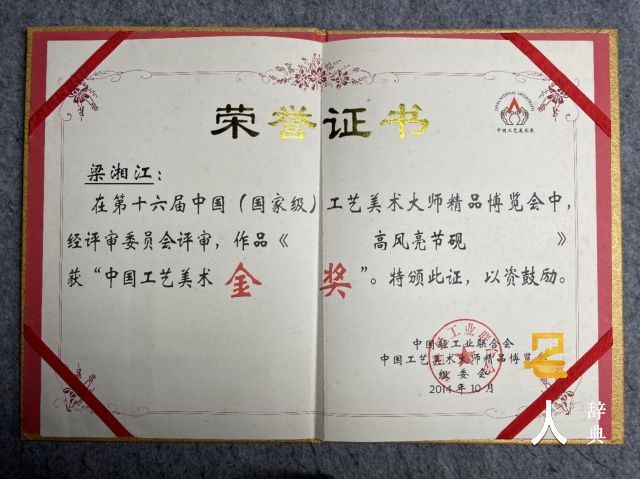 荣誉证书
中国工艺美术展
梁湘江：
在第十六届中国（国家级）工艺美术大师精品博览会中，
经评审委员会评审，作品《 高风亮节砚 》
获“中国工艺美术 金 奖”。特颁此证，以资鼓励。
中国轻工业联合会
中国工艺美术大师精品博览会
组委会
2014年10月
人
辞典